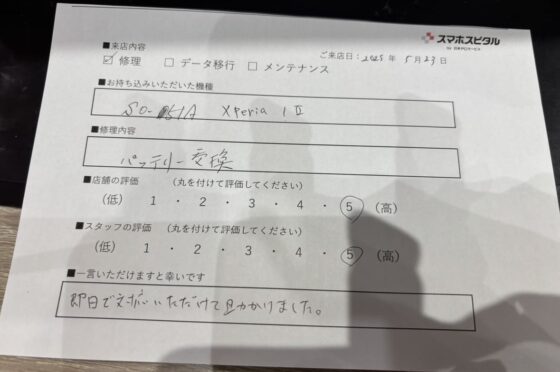 スマホスピタル
■来店内容
ご来店日：2025年 5月23日
☑ 修理 □ データ移行 □ メンテナンス
■お持ち込みいただいた機種
SO-51A Xperia 1 II
■修理内容
バッテリー交換
■店舗の評価 （丸を付けて評価してください）
（低） 1 ・ 2 ・ 3 ・ 4 ・ 5 （高）
■スタッフの評価 （丸を付けて評価してください）
（低） 1 ・ 2 ・ 3 ・ 4 ・ 5 （高）
■一言いただけますと幸いです
即日で対応いただけて助かりました。